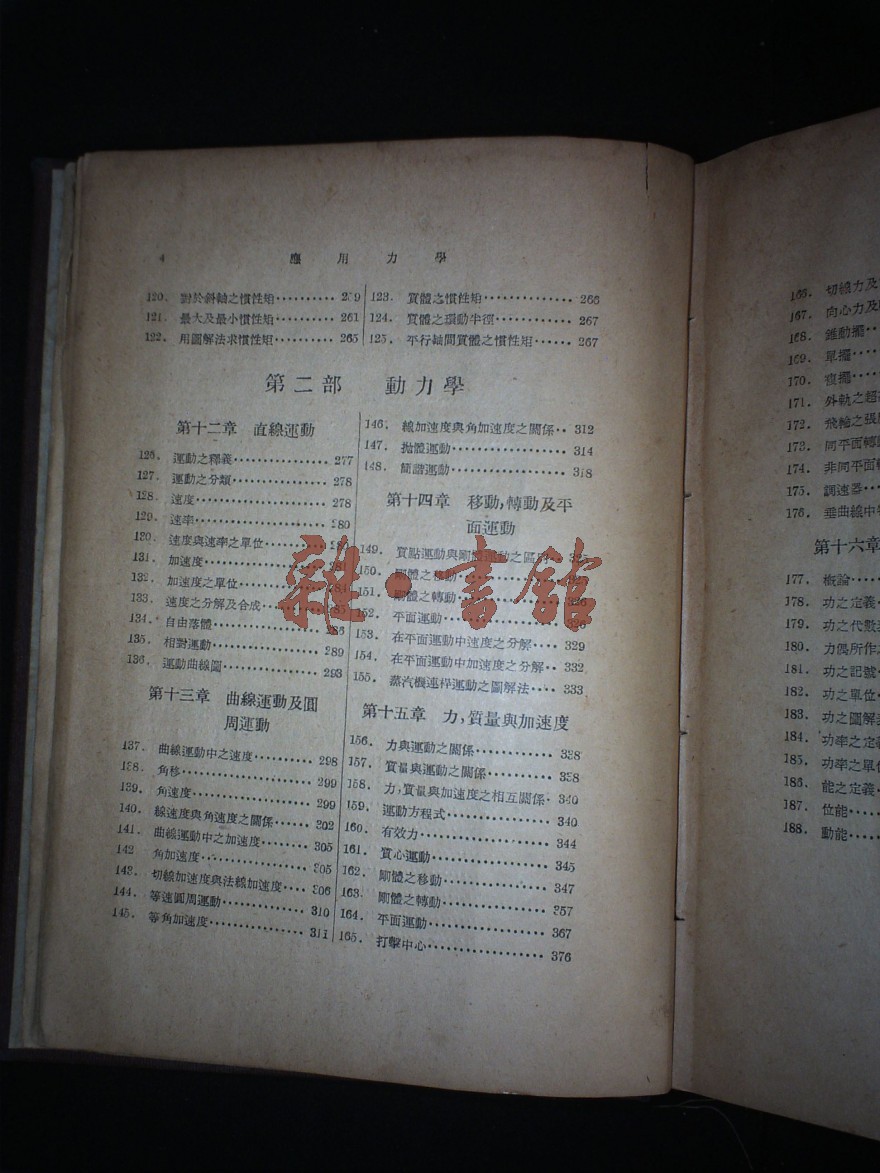 4
應用力學
120. 對於斜軸之慣性矩
121. 最大及最小慣性矩 261
122. 用圖解法求慣性矩 265
123. 質體之慣性矩 266
124. 質體之環動半徑 267
125. 平行軸間質體之慣性矩 267
第二部 動力學
第十二章 直線運動
126. 運動之釋義 277
127. 運動之分類 278
128. 速度 278
129. 速率 280
130. 速度與速率之單位
131. 加速度 281
132. 加速度之單位 284
133. 速度之分解及合成 285
134. 自由落體 286
135. 相對運動 289
136. 運動曲線圖 293
第十三章 曲線運動及圓
周運動
137. 曲線運動中之速度 298
138. 角移 299
139. 角速度 299
140. 線速度與角速度之關係 302
141. 曲線運動中之加速度 305
142. 角加速度 305
143. 切線加速度與法線加速度 306
144. 等速圓周運動 310
145. 等角加速度 311
146. 線加速度與角加速度之關係 312
147. 拋體運動 314
148. 簡諧運動 318
第十四章 移動,轉動及平
面運動
149. 質點運動與剛體運動之區別
150. 剛體之移動
151. 剛體之轉動 326
152. 平面運動 326
153. 在平面運動中速度之分解 329
154. 在平面運動中加速度之分解 332
155. 蒸汽機連桿運動之圖解法 333
第十五章 力,質量與加速度
156. 力與運動之關係 338
157. 質量與運動之關係 338
158. 力,質量與加速度之相互關係 340
159. 運動方程式 340
160. 有效力 344
161. 質心運動 345
162. 剛體之移動 347
163. 剛體之轉動 357
164. 平面運動 367
165. 打擊中心 376
166. 切線力及
167. 向心力及
168. 錐動擺
169. 單擺
170. 複擺
171. 外軌之超
172. 飛輪之張
173. 同平面轉
174. 非同平面轉
175. 調速器
176. 垂曲線中
第十六章
177. 概論
178. 功之定義
179. 功之代數
180. 力偶所作
181. 功之記號
182. 功之單位
183. 功之圖解
184. 功率之定
185. 功率之單
186. 能之定義
187. 位能
188. 動能
雜·書館